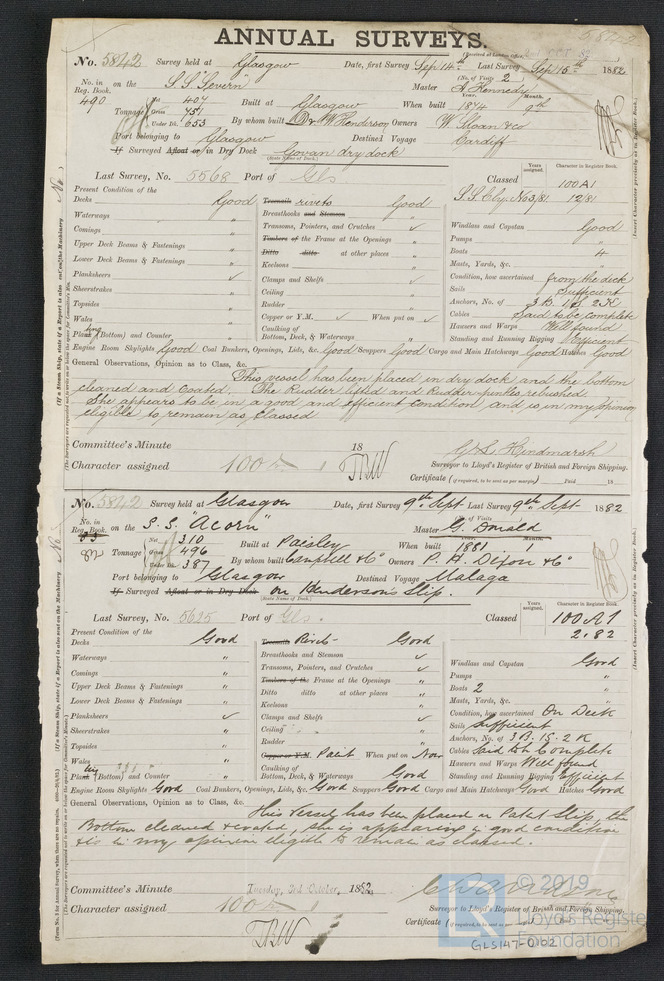 ANNUAL SURVEYS.
(Received at London Office
No. 5842 Survey held at Glasgow Date, first Survey Sep 14th Last Survey Sep 15th 1882
(No. of Visits 2
No. in Reg. Book. 490 on the S.S. "Severn" Master A. Kennedy
Year. Month.
Tonnage Net 407 Gross 751 Under Dk. 653 Built at Glasgow When built 1874 9th
By whom built D & W Henderson Owners W. Sloan & Co
Port belonging to Glasgow Destined Voyage Cardiff
If Surveyed Afloat or in Dry Dock Govan dry dock
(State Name of Dock.)
Last Survey, No. 5568 Port of Gls Classed 100A1
Years assigned. Character in Register Book.
S.S. Cby. No3/81 12/81
Present Condition of the
Decks Good Treenails rivets Good
Waterways " Breasthooks and Stemson "
Comings " Transoms, Pointers, and Crutches ✓ Windlass and Capstan Good
Upper Deck Beams & Fastenings " Timbers of the Frame at the Openings " Pumps "
Lower Deck Beams & Fastenings " Ditto ditto at other places " Boats 4
Keelsons " Masts, Yards, &c. "
Planksheers ✓ Clamps and Shelfs ✓ Condition, how ascertained from the deck
Sheerstrakes " Ceiling " Sails Sufficient
Topsides " Rudder " Anchors, No. of 3 B. 1 S. 2 K
Wales " Copper or Y.M. ✓ When put on ✓ Cables Said to be complete
Plating (Bottom) and Counter " Caulking of Bottom, Deck, & Waterways " Hawsers and Warps Well found
Standing and Running Rigging Efficient
Engine Room Skylights Good Coal Bunkers, Openings, Lids, &c. Good Scuppers Good Cargo and Main Hatchways Good Hatches Good
General Observations, Opinion as to Class, &c.
This vessel has been placed in dry dock and the bottom
cleaned and Coated. The Rudder lifted and Rudder pintles rebushed.
She appears to be in a good and efficient condition and is in my opinion
eligible to remain as Classed
Committee's Minute 18
Character assigned 100A1 TBW
Surveyor to Lloyd's Register of British and Foreign Shipping.
Certificate (if required, to be sent as per margin) Paid 18
No. 5842 Survey held at Glasgow Date, first Survey 9th Sept Last Survey 9th Sept 1882
No. in Reg. Book. on the S.S. "Acorn" Master G. Donald
Tonnage Net 310 Gross 496 Under Dk. 387 Built at Paisley When built 1881 1
By whom built Campbell & Co Owners P. H. Dixon & Co
Port belonging to Glasgow Destined Voyage Malaga
If Surveyed Afloat or in Dry Dock on Henderson's Slip.
(State Name of Dock.)
Last Survey, No. 5625 Port of Gls. Classed 100A1
Years assigned. Character in Register Book.
2.82
Present Condition of the
Decks Good Treenails Rivets Good
Waterways " Breasthooks and Stemson "
Comings " Transoms, Pointers, and Crutches ✓ Windlass and Capstan Good
Upper Deck Beams & Fastenings " Timbers of the Frame at the Openings " Pumps "
Lower Deck Beams & Fastenings " Ditto ditto at other places " Boats 2
Keelsons " Masts, Yards, &c. "
Planksheers ✓ Clamps and Shelfs ✓ Condition, how ascertained On Deck
Sheerstrakes " Ceiling " Sails Sufficient
Topsides " Rudder " Anchors, No. of 3 B. 1 S. 2 K
Wales " Copper or Y.M. Paint When put on Now Cables Said to be Complete
Plating (Bottom) and Counter " Caulking of Bottom, Deck, & Waterways Good Hawsers and Warps Well found
Standing and Running Rigging Efficient
Engine Room Skylights Good Coal Bunkers, Openings, Lids, &c. Good Scuppers Good Cargo and Main Hatchways Good Hatches Good
General Observations, Opinion as to Class, &c.
This Vessel has been placed on Patent Slip, the
Bottom cleaned & coated, she is appearing in good condition
& is in my opinion eligible to remain as classed.
Committee's Minute Tuesday, 3rd October, 1882
Character assigned 100A1 TBW
Surveyor to Lloyd's Register of British and Foreign Shipping.
Certificate (if required, to be sent
© 2019
Lloyd's Register
Foundation
GLS147-0162